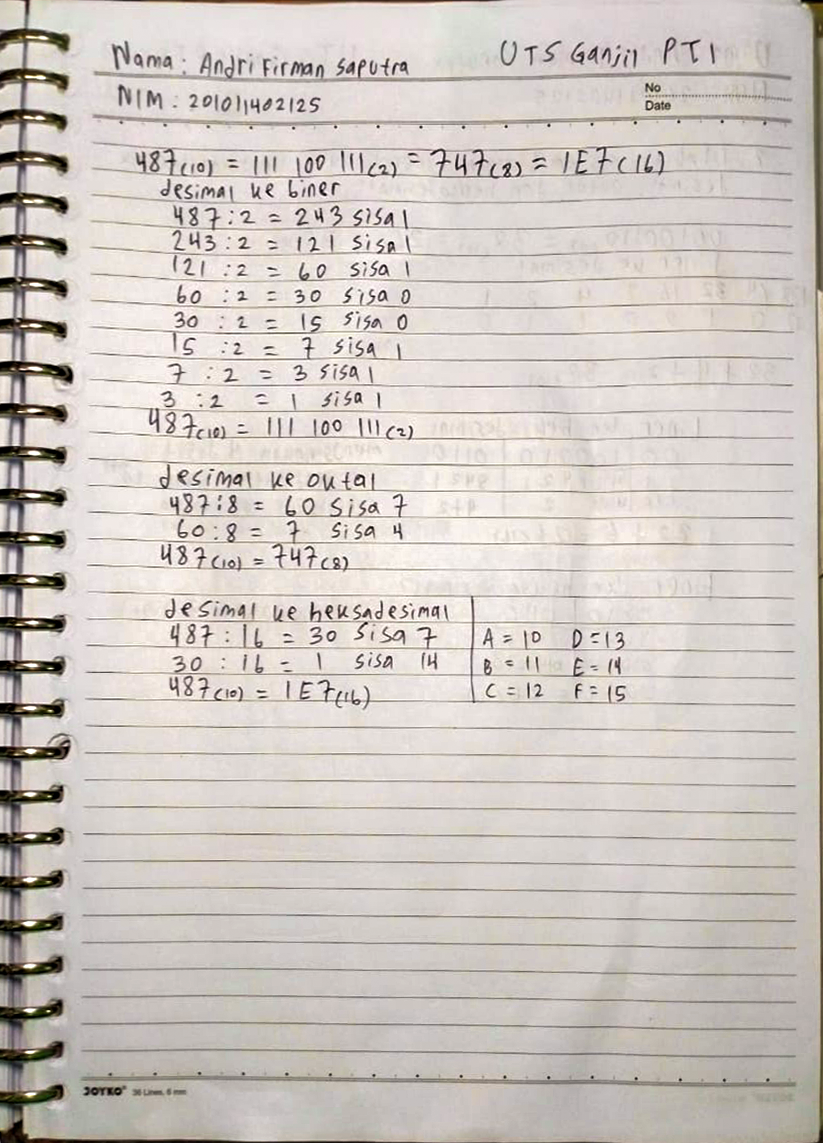 Nama : Andri Firman saputra UTS Ganjil PTI
NIM : 201011402125
No
Date
487(10) = 111 100 111(2) = 747(8) = 1E7(16)
desimal ke biner
487 : 2 = 243 sisa 1
243 : 2 = 121 sisa 1
121 : 2 = 60 sisa 1
60 : 2 = 30 sisa 0
30 : 2 = 15 sisa 0
15 : 2 = 7 sisa 1
7 : 2 = 3 sisa 1
3 : 2 = 1 sisa 1
487(10) = 111 100 111(2)
desimal ke oktal
487 : 8 = 60 sisa 7
60 : 8 = 7 sisa 4
487(10) = 747(8)
desimal ke heksadesimal
487 : 16 = 30 sisa 7
30 : 16 = 1 sisa 14
487(10) = 1E7(16)
A = 10 D = 13
B = 11 E = 14
C = 12 F = 15
JOYKO 36 Lines, 6 mm